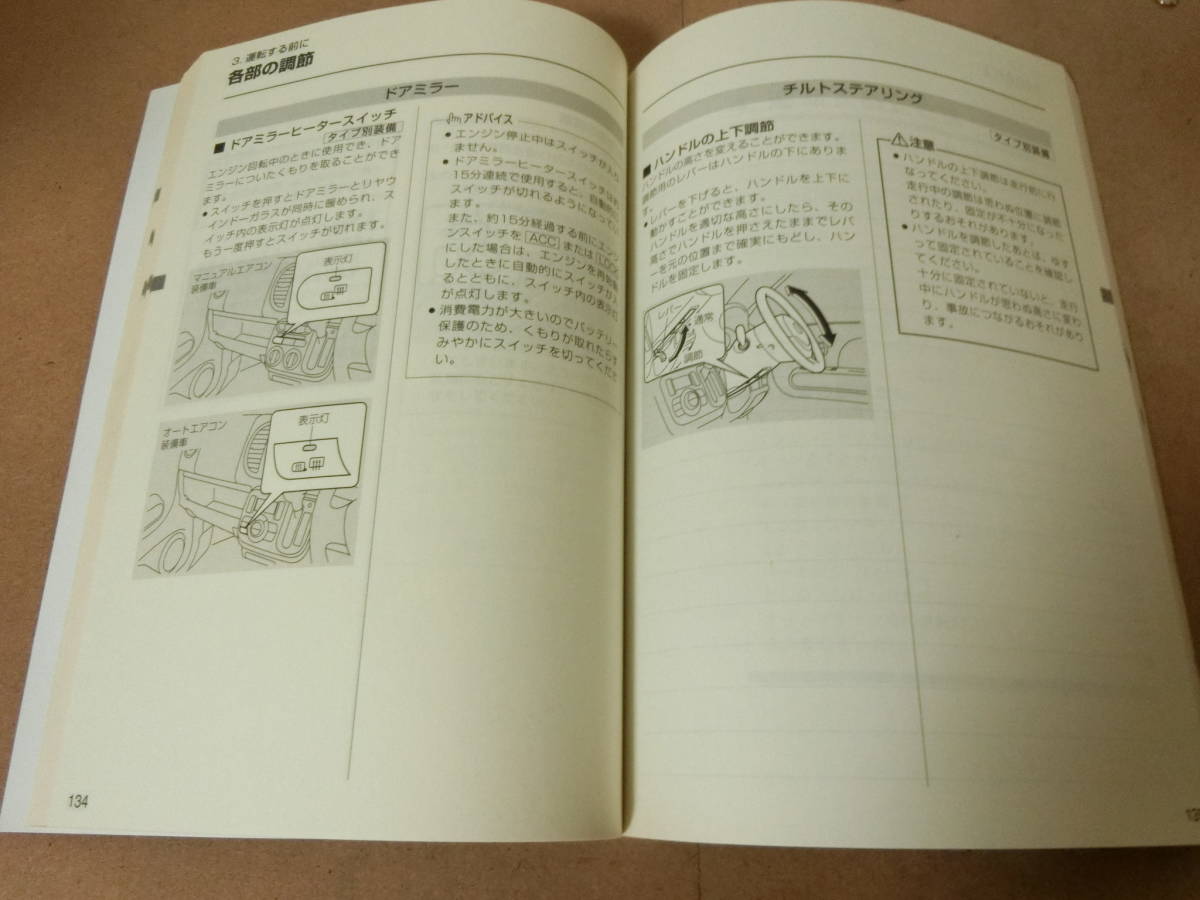 3. 運転する前に
各部の調節
ドアミラー
■ ドアミラーヒータースイッチ
タイプ別装備
エンジン回転中のときに使用でき、ドア
ミラーについたくもりを取ることができ
ます。
●スイッチを押すとドアミラーとリヤウ
インドーガラスが同時に暖められ、ス
イッチ内の表示灯が点灯します。
もう一度押すとスイッチが切れます。
マニュアルエアコン
装備車
表示灯
オートエアコン
装備車
表示灯
アドバイス
● エンジン停止中はスイッチが入り
ません。
● ドアミラーヒータースイッチは
15分連続で使用すると、自動的に
スイッチが切れるようになってい
ます。
また、約15分経過する前にエンジ
ンスイッチを ACC または LOCK
にした場合は、エンジンを再始動
したときに自動的にスイッチが入
るとともに、スイッチ内の表示灯
が点灯します。
● 消費電力が大きいのでバッテリー
保護のため、くもりが取れたらす
みやかにスイッチを切ってくださ
い。
134
チルトステアリング
タイプ別装備
■ ハンドルの上下調節
ハンドルの高さを変えることができます。
調節用のレバーはハンドルの下にありま
す。
●レバーを下げると、ハンドルを上下に
動かすことができます。
ハンドルを適切な高さにしたら、その
高さでハンドルを押さえたままでレバ
ーを元の位置まで確実にもどし、ハン
ドルを固定します。
レバー
通常
調節
注意
● ハンドルの上下調節は走行前に行
なってください。
走行中の調節は思わぬ位置に調節
されたり、固定が不十分になった
りするおそれがあります。
● ハンドルを調節したあとは、ゆす
って固定されていることを確認し
てください。
十分に固定されていないと、走行
中にハンドルが思わぬ高さに変わ
り、事故につながるおそれがあり
ます。